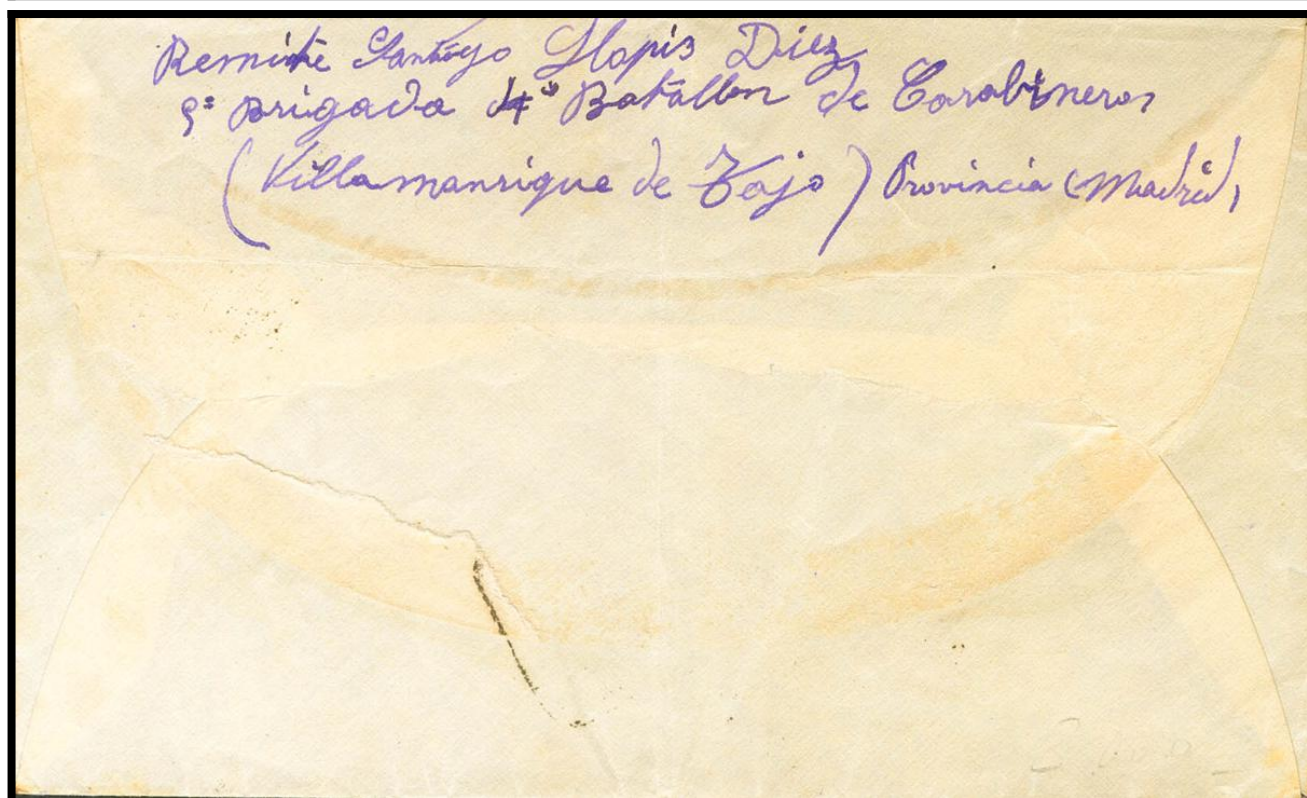 Remite Santiago Llopis Diez
5ª Brigada 4º Batallon de Carabineros
(Villamanrique de Tajo) Provincia (Madrid)